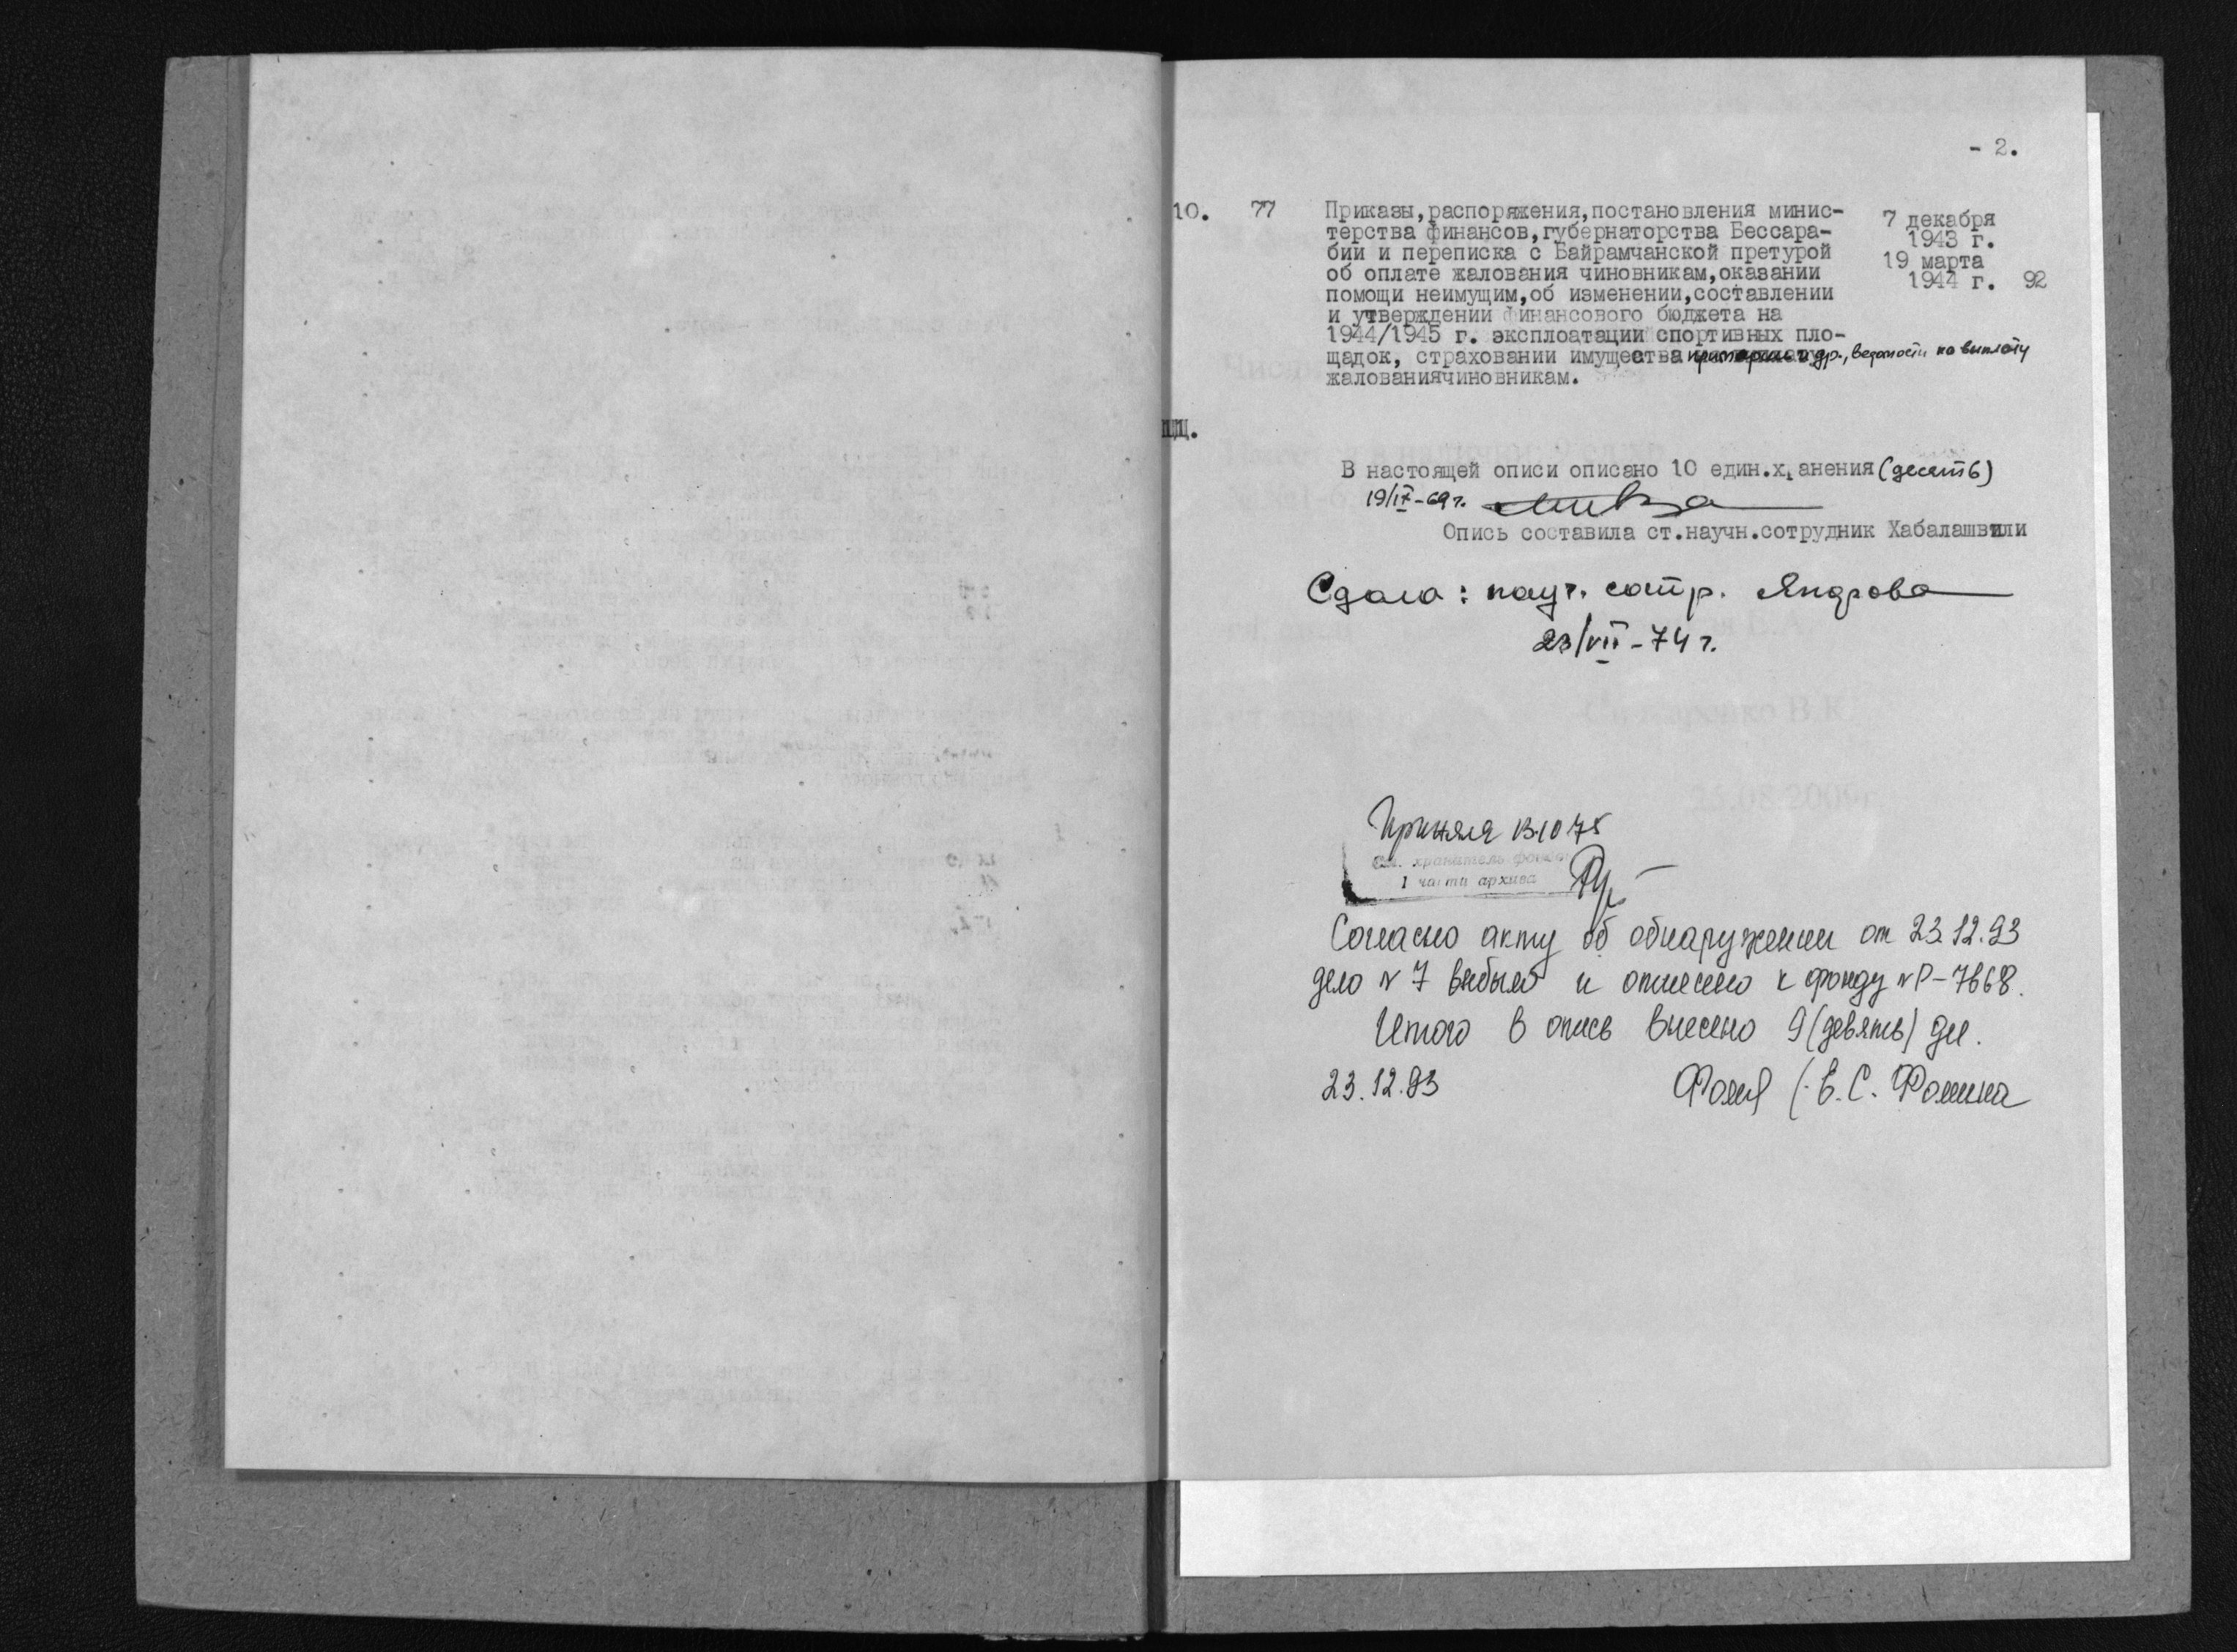 - 2.
10. 77 Приказы,распоряжения,постановления минис-
терства финансов,губернаторства Бессара-
бии и переписка с Байрамчанской претурой
об оплате жалования чиновникам,оказании
помощи неимущим,об изменении,составлении
и утверждении финансового бюджета на
1944/1945 г. эксплоатации спортивных пло-
щадок, страховании имущества и др., ведомости на выплату
жалованиячиновникам.
7 декабря
1943 г.
19 марта
1944 г. 92
В настоящей описи описано 10 един.х анения (десять)
19/IX-69 г.
Опись составила ст.научн.сотрудник Хабалашвили
Сдала: науч. сотр. Яндрова
23/VII-74 г.
Приняла 13.10 75
хранитель фондов
1 части архива
Согласно акту об обнаружении от 23.12.93
дело № 7 выбыло и отнесено к фонду № Р-7668.
Итого в опись внесено 9 (девять) дел.
23.12.93 (Е.С. Фомина